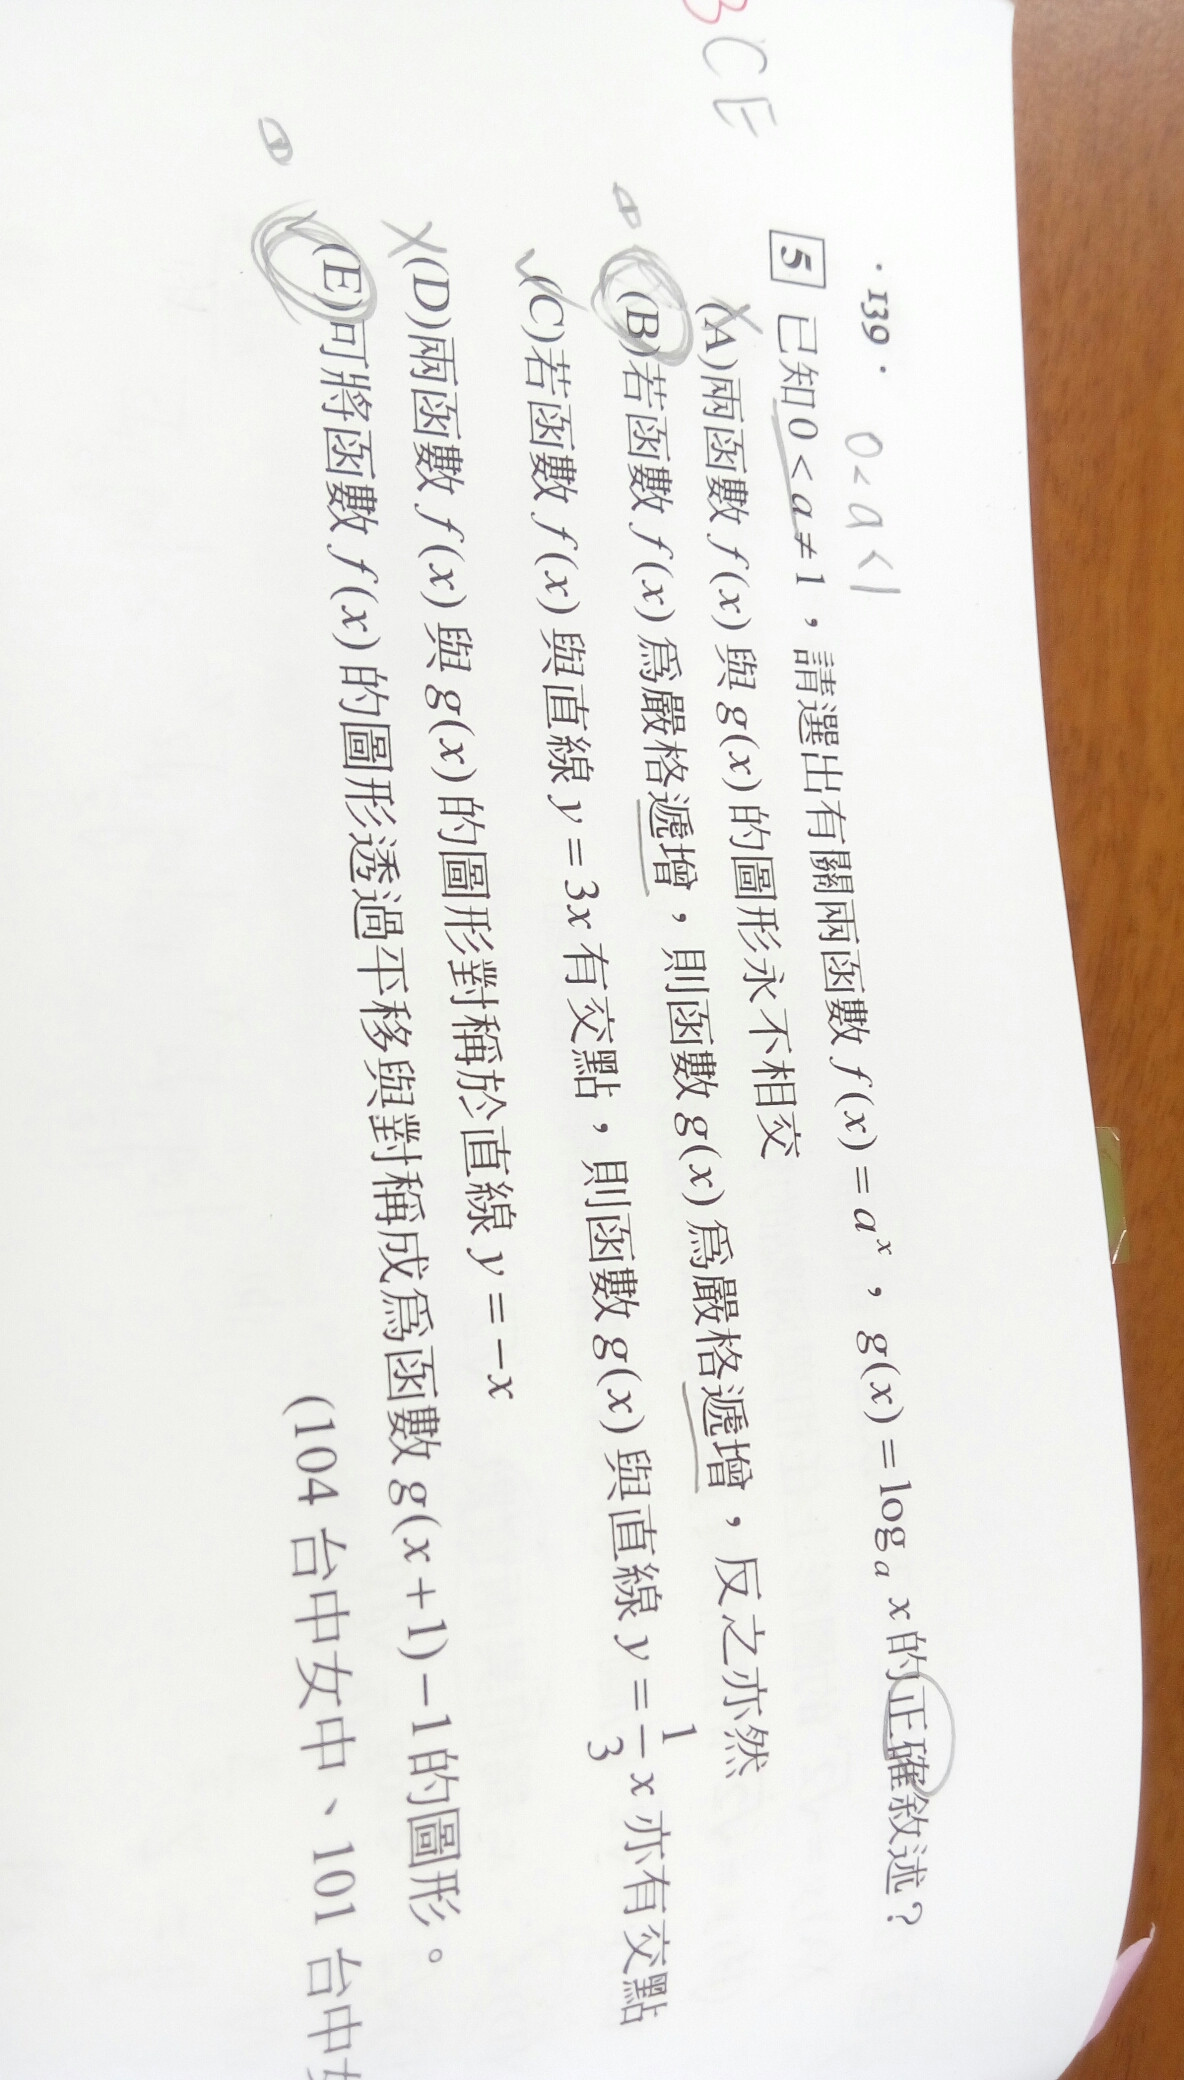 BCE
·139· 0<a<1
5 已知0<a≠1，請選出有關兩函數 f(x)=aˣ，g(x)=logₐ x的正確敘述？
(A)兩函數 f(x) 與 g(x) 的圖形永不相交
(B)若函數 f(x) 爲嚴格遞增，則函數 g(x) 爲嚴格遞增，反之亦然
(C)若函數 f(x) 與直線 y=3x 有交點，則函數 g(x) 與直線 y=1/3 x 亦有交點
(D)兩函數 f(x) 與 g(x) 的圖形對稱於直線 y=-x
(E)可將函數 f(x) 的圖形透過平移與對稱成爲函數 g(x+1)-1 的圖形。
(104 台中女中、101 台中女